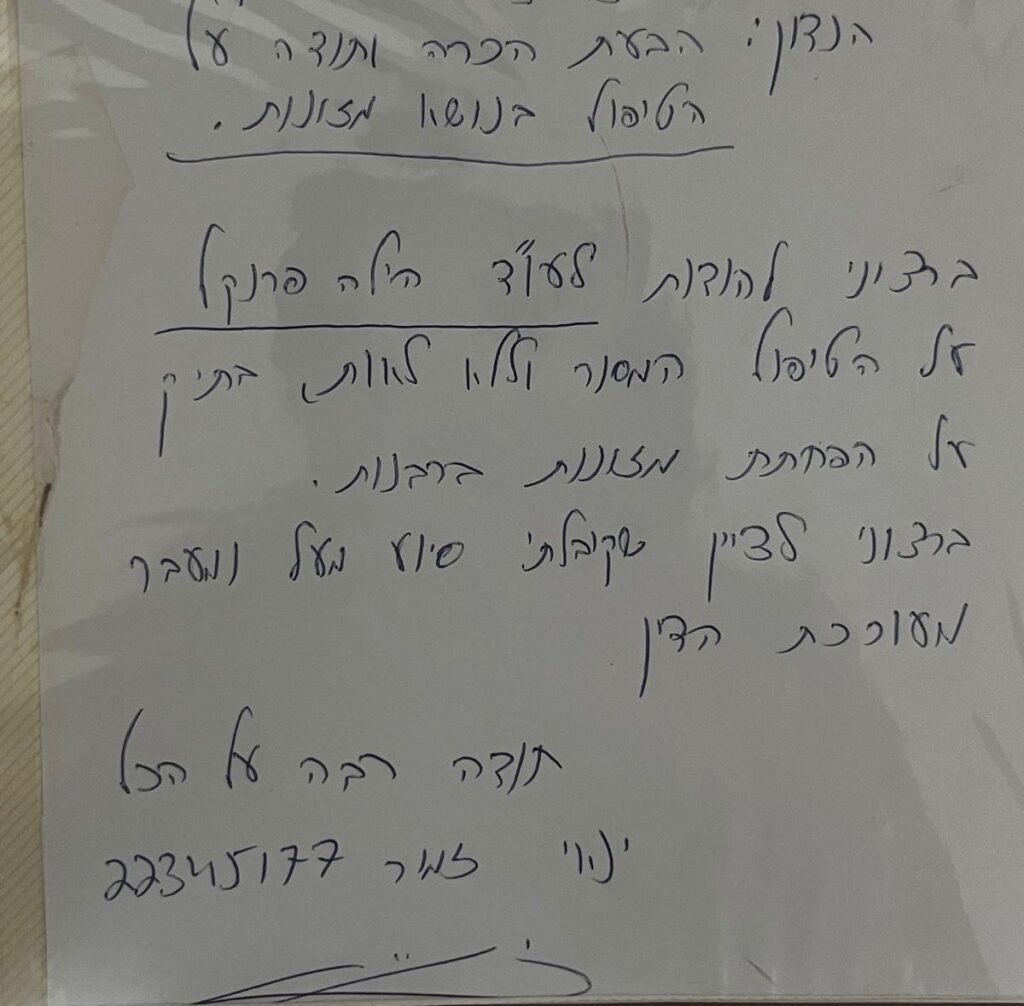 הנדון: הבעת הכרה ותודה על
הטיפול בנושא מזונות.
ברצוני להודות לעו"ד הילה פרנקל
על הטיפול המסור וללא לאות, בתיק
על הפחתת מזונות ברבנות.
ברצוני לציין שקיבלתי סיוע מעל ומעבר
מעורכת הדין
תודה רבה על הכל
זמיר 22345177